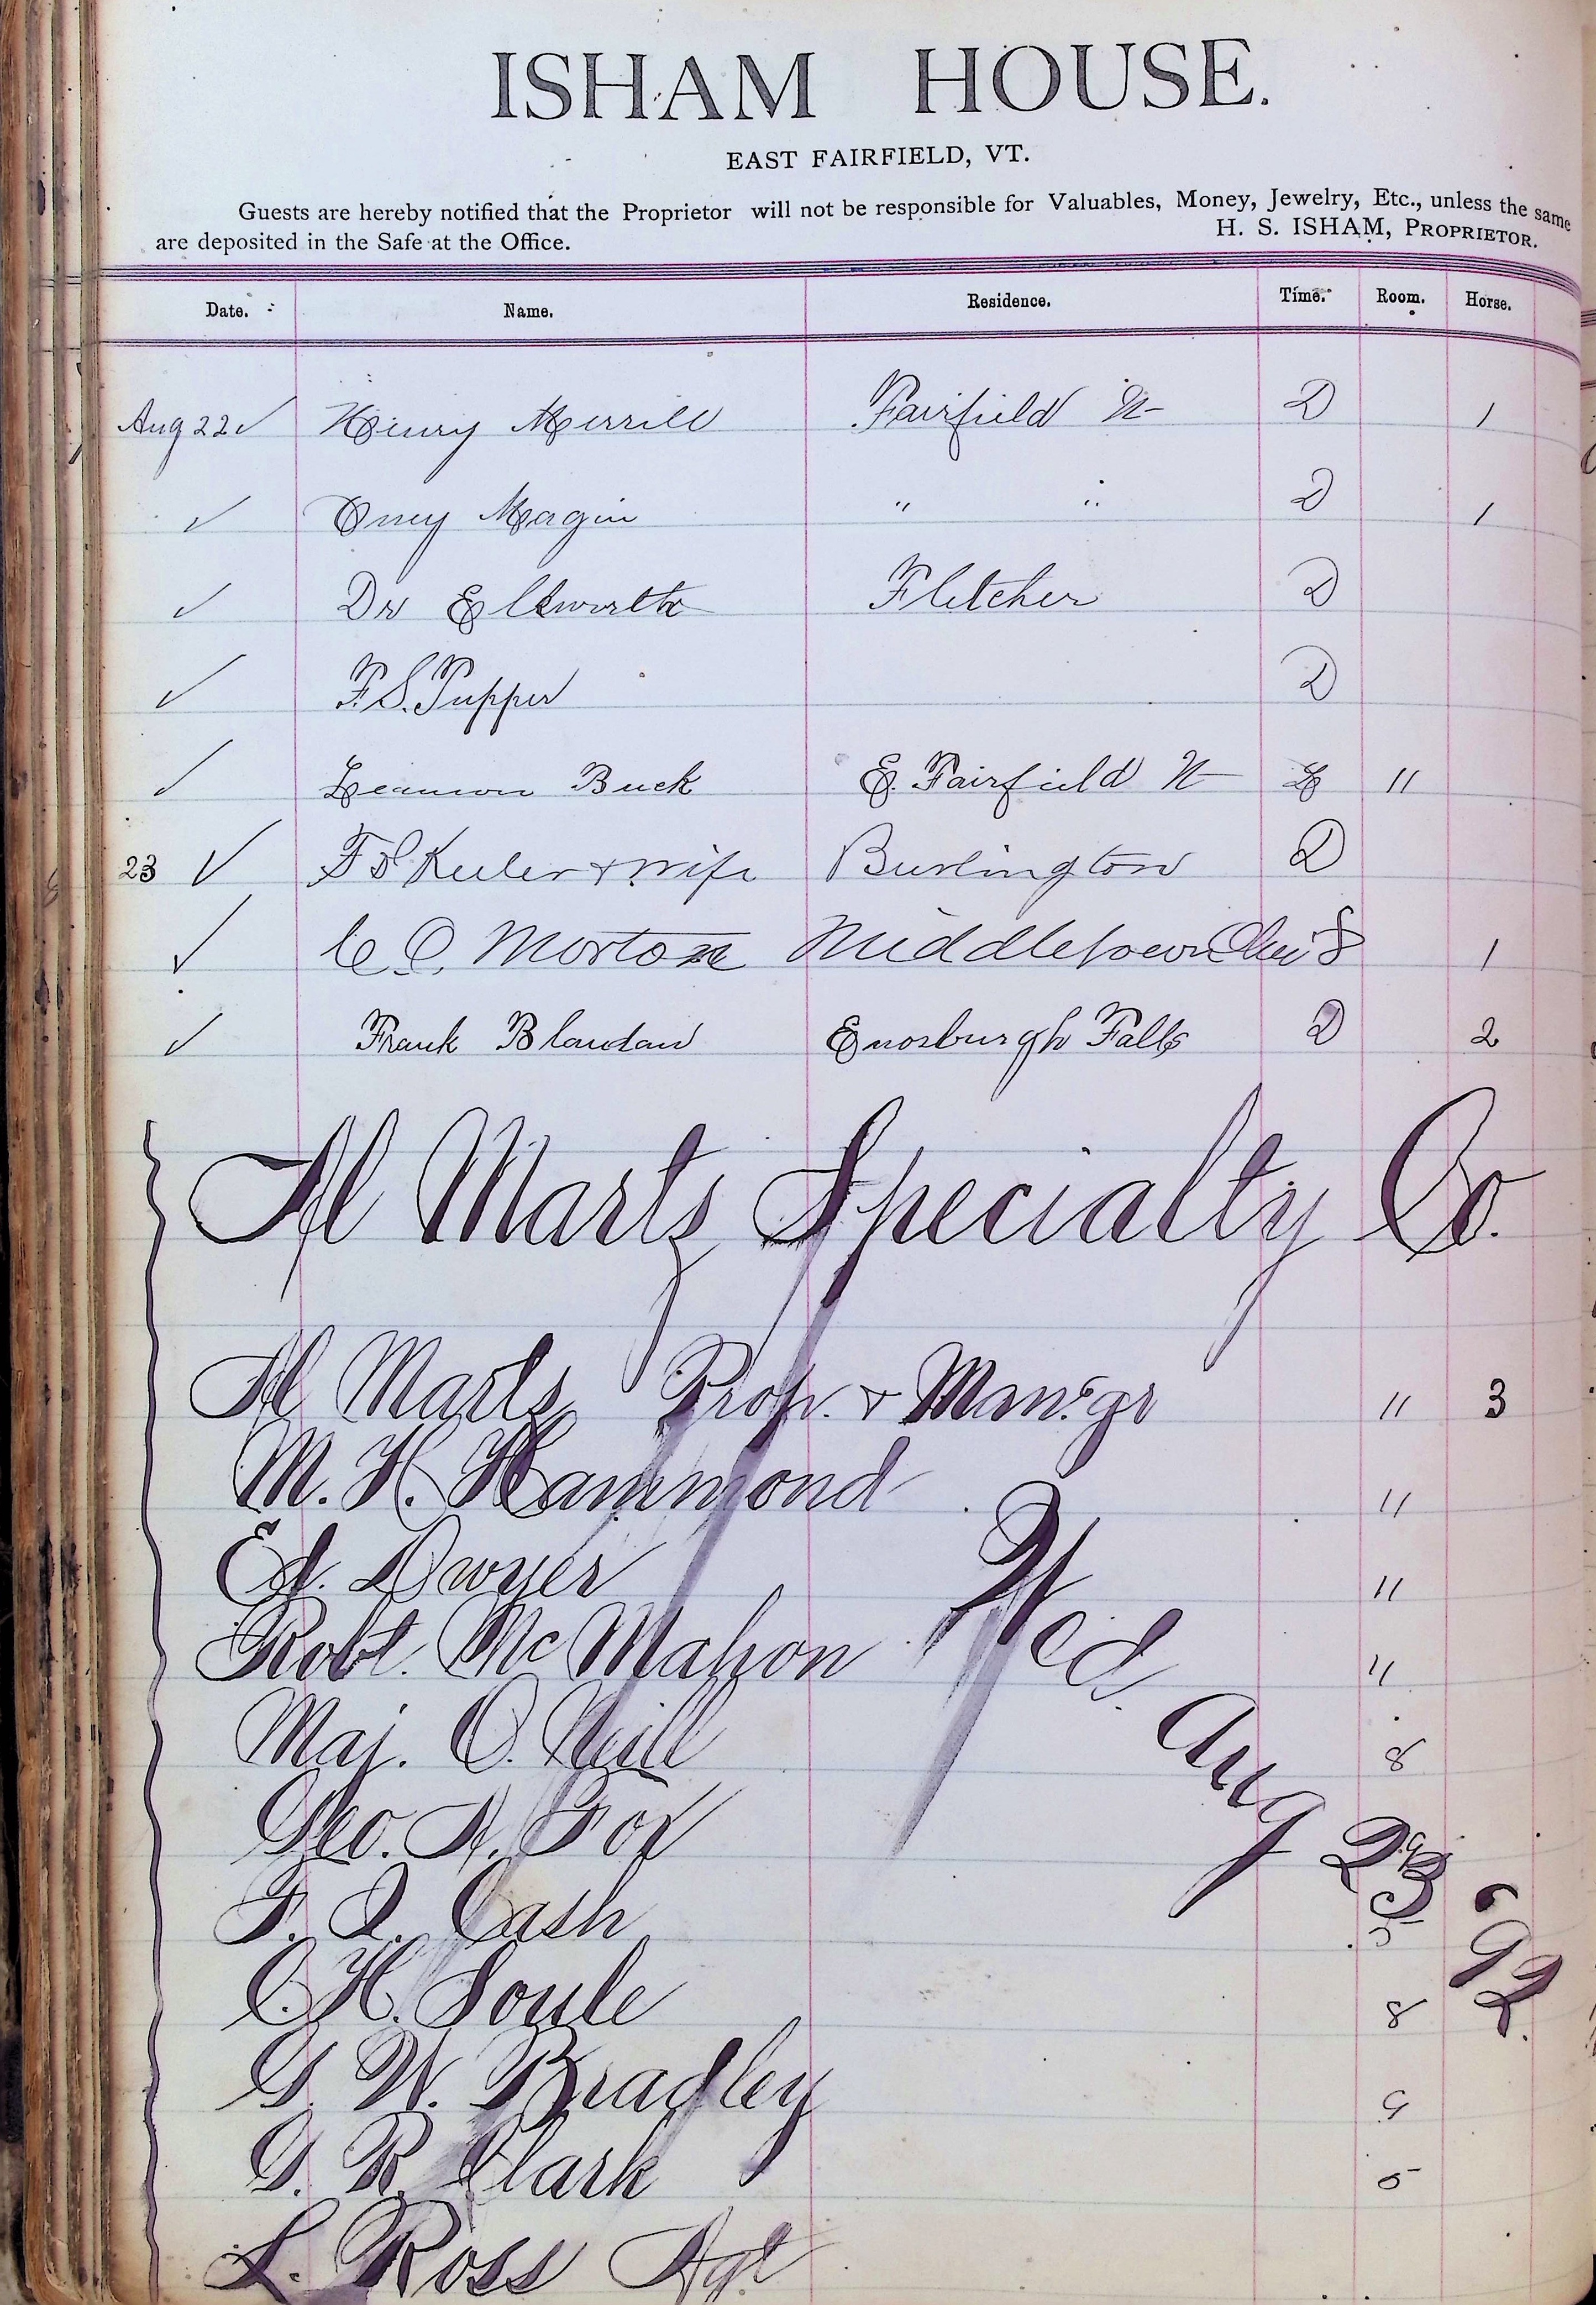 ISHAM HOUSE.
EAST FAIRFIELD, VT.
Guests are hereby notified that the Proprietor will not be responsible for Valuables, Money, Jewelry, Etc., unless the same
are deposited in the Safe at the Office. H. S. ISHAM, PROPRIETOR.
Date. Name. Residence. Time. Room. Horse.
Aug 22 ✓ Henry Merrill Fairfield Vt D 1
✓ Magin " " D 1
✓ Dr Ellsworth Fletcher D
✓ F. S. Tupper D
✓ Buck E. Fairfield Vt 11
23 ✓ Keeler + wife Burlington D
✓ C. C. Morton Middletown 1
✓ Frank Enosburgh Falls D 2
Al Martz Specialty Co.
Al Martz Prop. + Man'gr 11 3
M. H. Hammond 11
Ed. Dwyer 11
Robt. McMahon 11
Maj. O. Neill 8
Geo. A. Fox
F. Cash 5
C. H. Soule 8
G. W. Bradley 9
G. R. Clark 5
L. Ross Agt
Wed. Aug 23 '92.